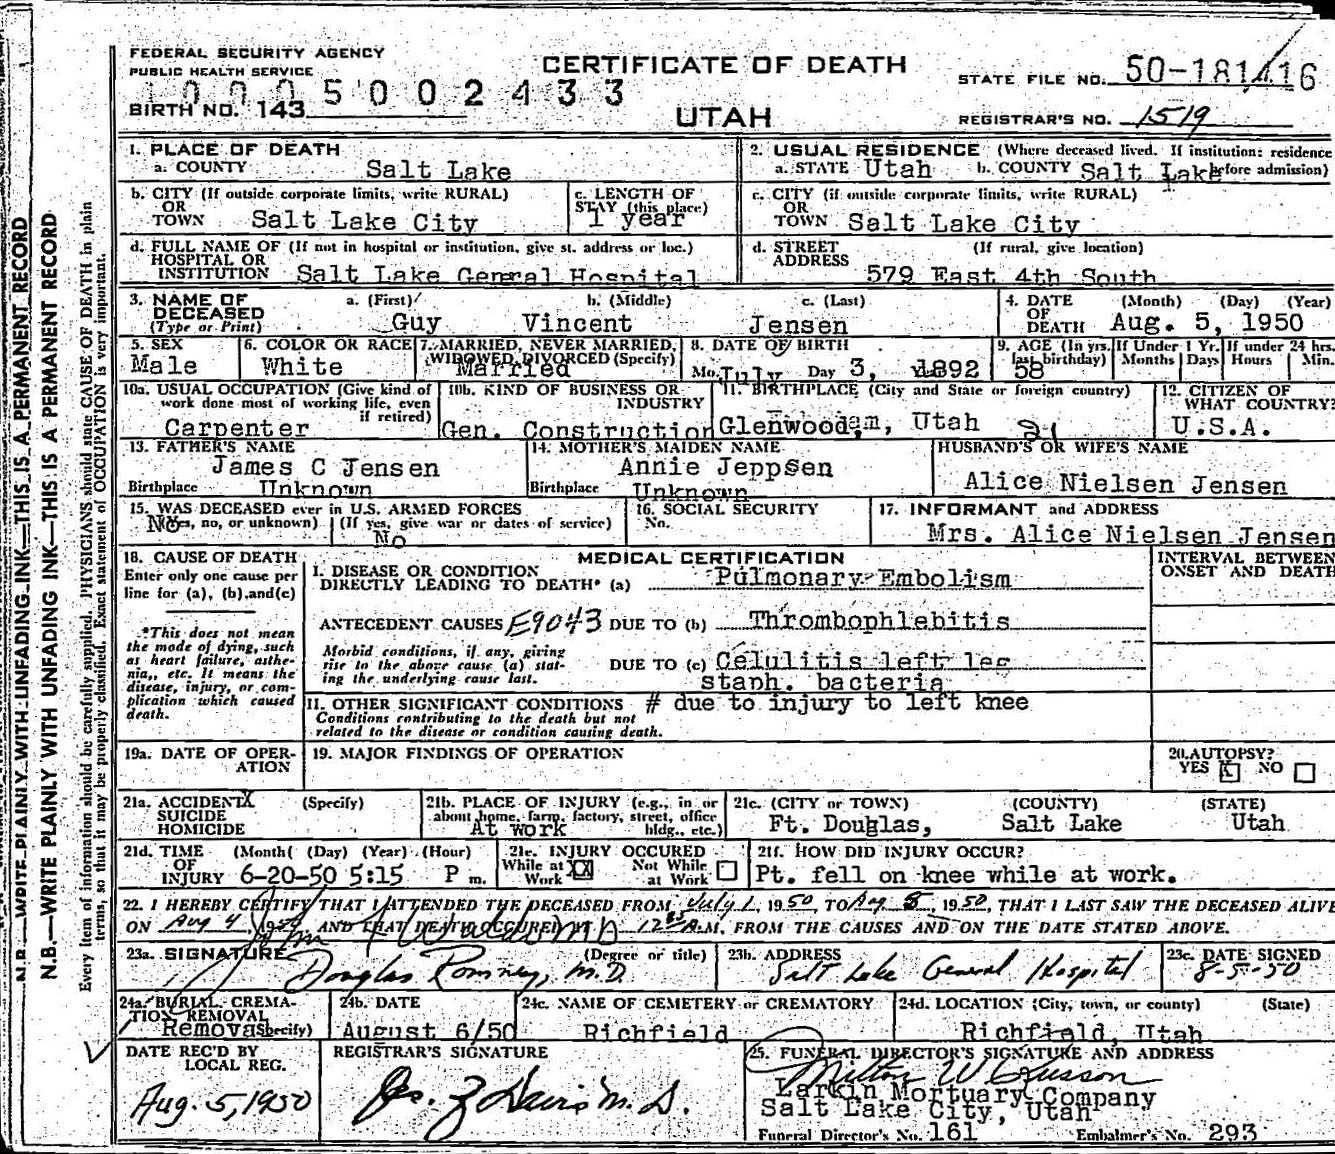 FEDERAL SECURITY AGENCY
PUBLIC HEALTH SERVICE
CERTIFICATE OF DEATH
UTAH
STATE FILE NO. 50-181416
10005002433
BIRTH NO. 143
REGISTRAR'S NO. 1519
1. PLACE OF DEATH
a. COUNTY Salt Lake
2. USUAL RESIDENCE (Where deceased lived. If institution: residence before admission)
a. STATE Utah b. COUNTY Salt Lake
b. CITY (If outside corporate limits, write RURAL)
OR
TOWN Salt Lake City
c. LENGTH OF
STAY (this place)
1 year
c. CITY (if outside corporate limits, write RURAL)
OR
TOWN Salt Lake City
d. FULL NAME OF (If not in hospital or institution, give st. address or loc.)
HOSPITAL OR
INSTITUTION Salt Lake General Hospital
d. STREET (If rural, give location)
ADDRESS
579 East 4th South
3. NAME OF
DECEASED
(Type or Print)
a. (First) b. (Middle) c. (Last)
Guy Vincent Jensen
4. DATE (Month) (Day) (Year)
OF
DEATH Aug. 5, 1950
5. SEX
Male
6. COLOR OR RACE
White
7. MARRIED, NEVER MARRIED,
WIDOWED, DIVORCED (Specify)
Married
8. DATE OF BIRTH
Mo. July Day 3, 1892
9. AGE (In yrs. last birthday)
58
If Under 1 Yr.
Months Days
If under 24 hrs.
Hours Min.
10a. USUAL OCCUPATION (Give kind of
work done most of working life, even
if retired)
Carpenter
10b. KIND OF BUSINESS OR
INDUSTRY
Gen. Construction
11. BIRTHPLACE (City and State or foreign country)
Glenwood, Utah
12. CITIZEN OF
WHAT COUNTRY?
U.S.A.
13. FATHER'S NAME
James C Jensen
Birthplace Unknown
14. MOTHER'S MAIDEN NAME
Annie Jeppsen
Birthplace Unknown
HUSBAND'S OR WIFE'S NAME
Alice Nielsen Jensen
15. WAS DECEASED ever in U.S. ARMED FORCES
(Yes, no, or unknown) (If yes, give war or dates of service)
No No
16. SOCIAL SECURITY
No.
17. INFORMANT and ADDRESS
Mrs. Alice Nielsen Jensen
18. CAUSE OF DEATH
Enter only one cause per
line for (a), (b), and (c)
*This does not mean
the mode of dying, such
as heart failure, asthe-
nia, etc. It means the
disease, injury, or com-
plication which caused
death.
MEDICAL CERTIFICATION
INTERVAL BETWEEN
ONSET AND DEATH
I. DISEASE OR CONDITION
DIRECTLY LEADING TO DEATH* (a) Pulmonary Embolism
ANTECEDENT CAUSES E9043 DUE TO (b) Thrombophlebitis
Morbid conditions, if any, giving
rise to the above cause (a) stat-
ing the underlying cause last.
DUE TO (c) Celulitis left leg
staph. bacteria
II. OTHER SIGNIFICANT CONDITIONS # due to injury to left knee
Conditions contributing to the death but not
related to the disease or condition causing death.
19a. DATE OF OPER-
ATION
19. MAJOR FINDINGS OF OPERATION
20. AUTOPSY?
YES X NO
21a. ACCIDENT X (Specify)
SUICIDE
HOMICIDE
21b. PLACE OF INJURY (e.g., in or
about home, farm, factory, street, office
bldg., etc.)
At work
21c. (CITY or TOWN) (COUNTY) (STATE)
Ft. Douglas, Salt Lake Utah
21d. TIME (Month) (Day) (Year) (Hour)
OF
INJURY 6-20-50 5:15 P m.
21e. INJURY OCCURED
While at Work XX Not While at Work
21f. HOW DID INJURY OCCUR?
Pt. fell on knee while at work.
22. I HEREBY CERTIFY THAT I ATTENDED THE DECEASED FROM July 1, 1950, TO Aug 5, 1950, THAT I LAST SAW THE DECEASED ALIVE
ON Aug 4, 1950 AND THAT DEATH OCCURED AT 12 A.M. FROM THE CAUSES AND ON THE DATE STATED ABOVE.
23a. SIGNATURE (Degree or title)
Douglas Romney, M.D.
23b. ADDRESS
Salt Lake General Hospital
23c. DATE SIGNED
8-5-50
24a. BURIAL, CREMA-
TION, REMOVAL
(Specify) Removal
24b. DATE
August 6/50
24c. NAME OF CEMETERY or CREMATORY
Richfield
24d. LOCATION (City, town, or county) (State)
Richfield, Utah
DATE REC'D BY
LOCAL REG.
Aug. 5, 1950
REGISTRAR'S SIGNATURE
25. FUNERAL DIRECTOR'S SIGNATURE AND ADDRESS
Larkin Mortuary Company
Salt Lake City, Utah
Funeral Director's No. 161 Embalmer's No. 293
N.B.—WRITE PLAINLY WITH UNFADING INK—THIS IS A PERMANENT RECORD
N.B.—WRITE PLAINLY WITH UNFADING INK—THIS IS A PERMANENT RECORD
Every item of information should be carefully supplied. PHYSICIANS should state CAUSE OF DEATH in plain
terms, so that it may be properly classified. Exact statement of OCCUPATION is very important.